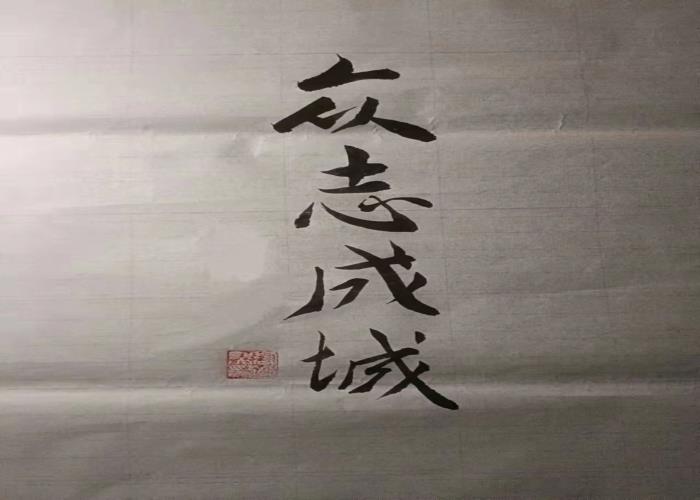 众志成城